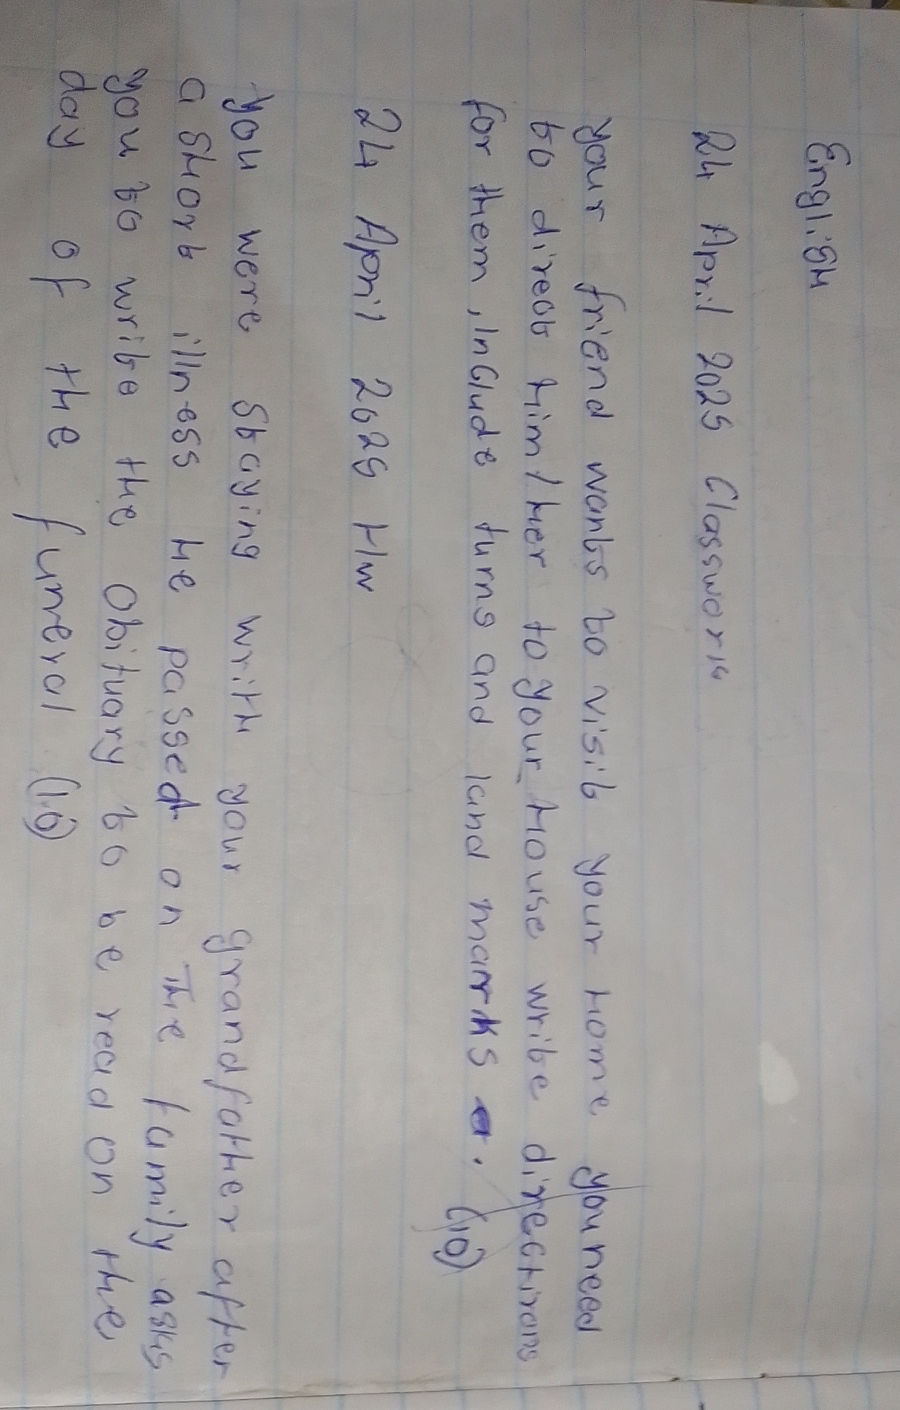 English
24 April 2025 Classwork
Your friend wants to visit your home you need
to direct him/her to your House write directions
for them, include turns and land marks. (10)
24 April 2025 H/w
You were staying with your grandfather after
a short illness he passed on The family asks
you to write the Obituary to be read on the
day of the funeral (10)